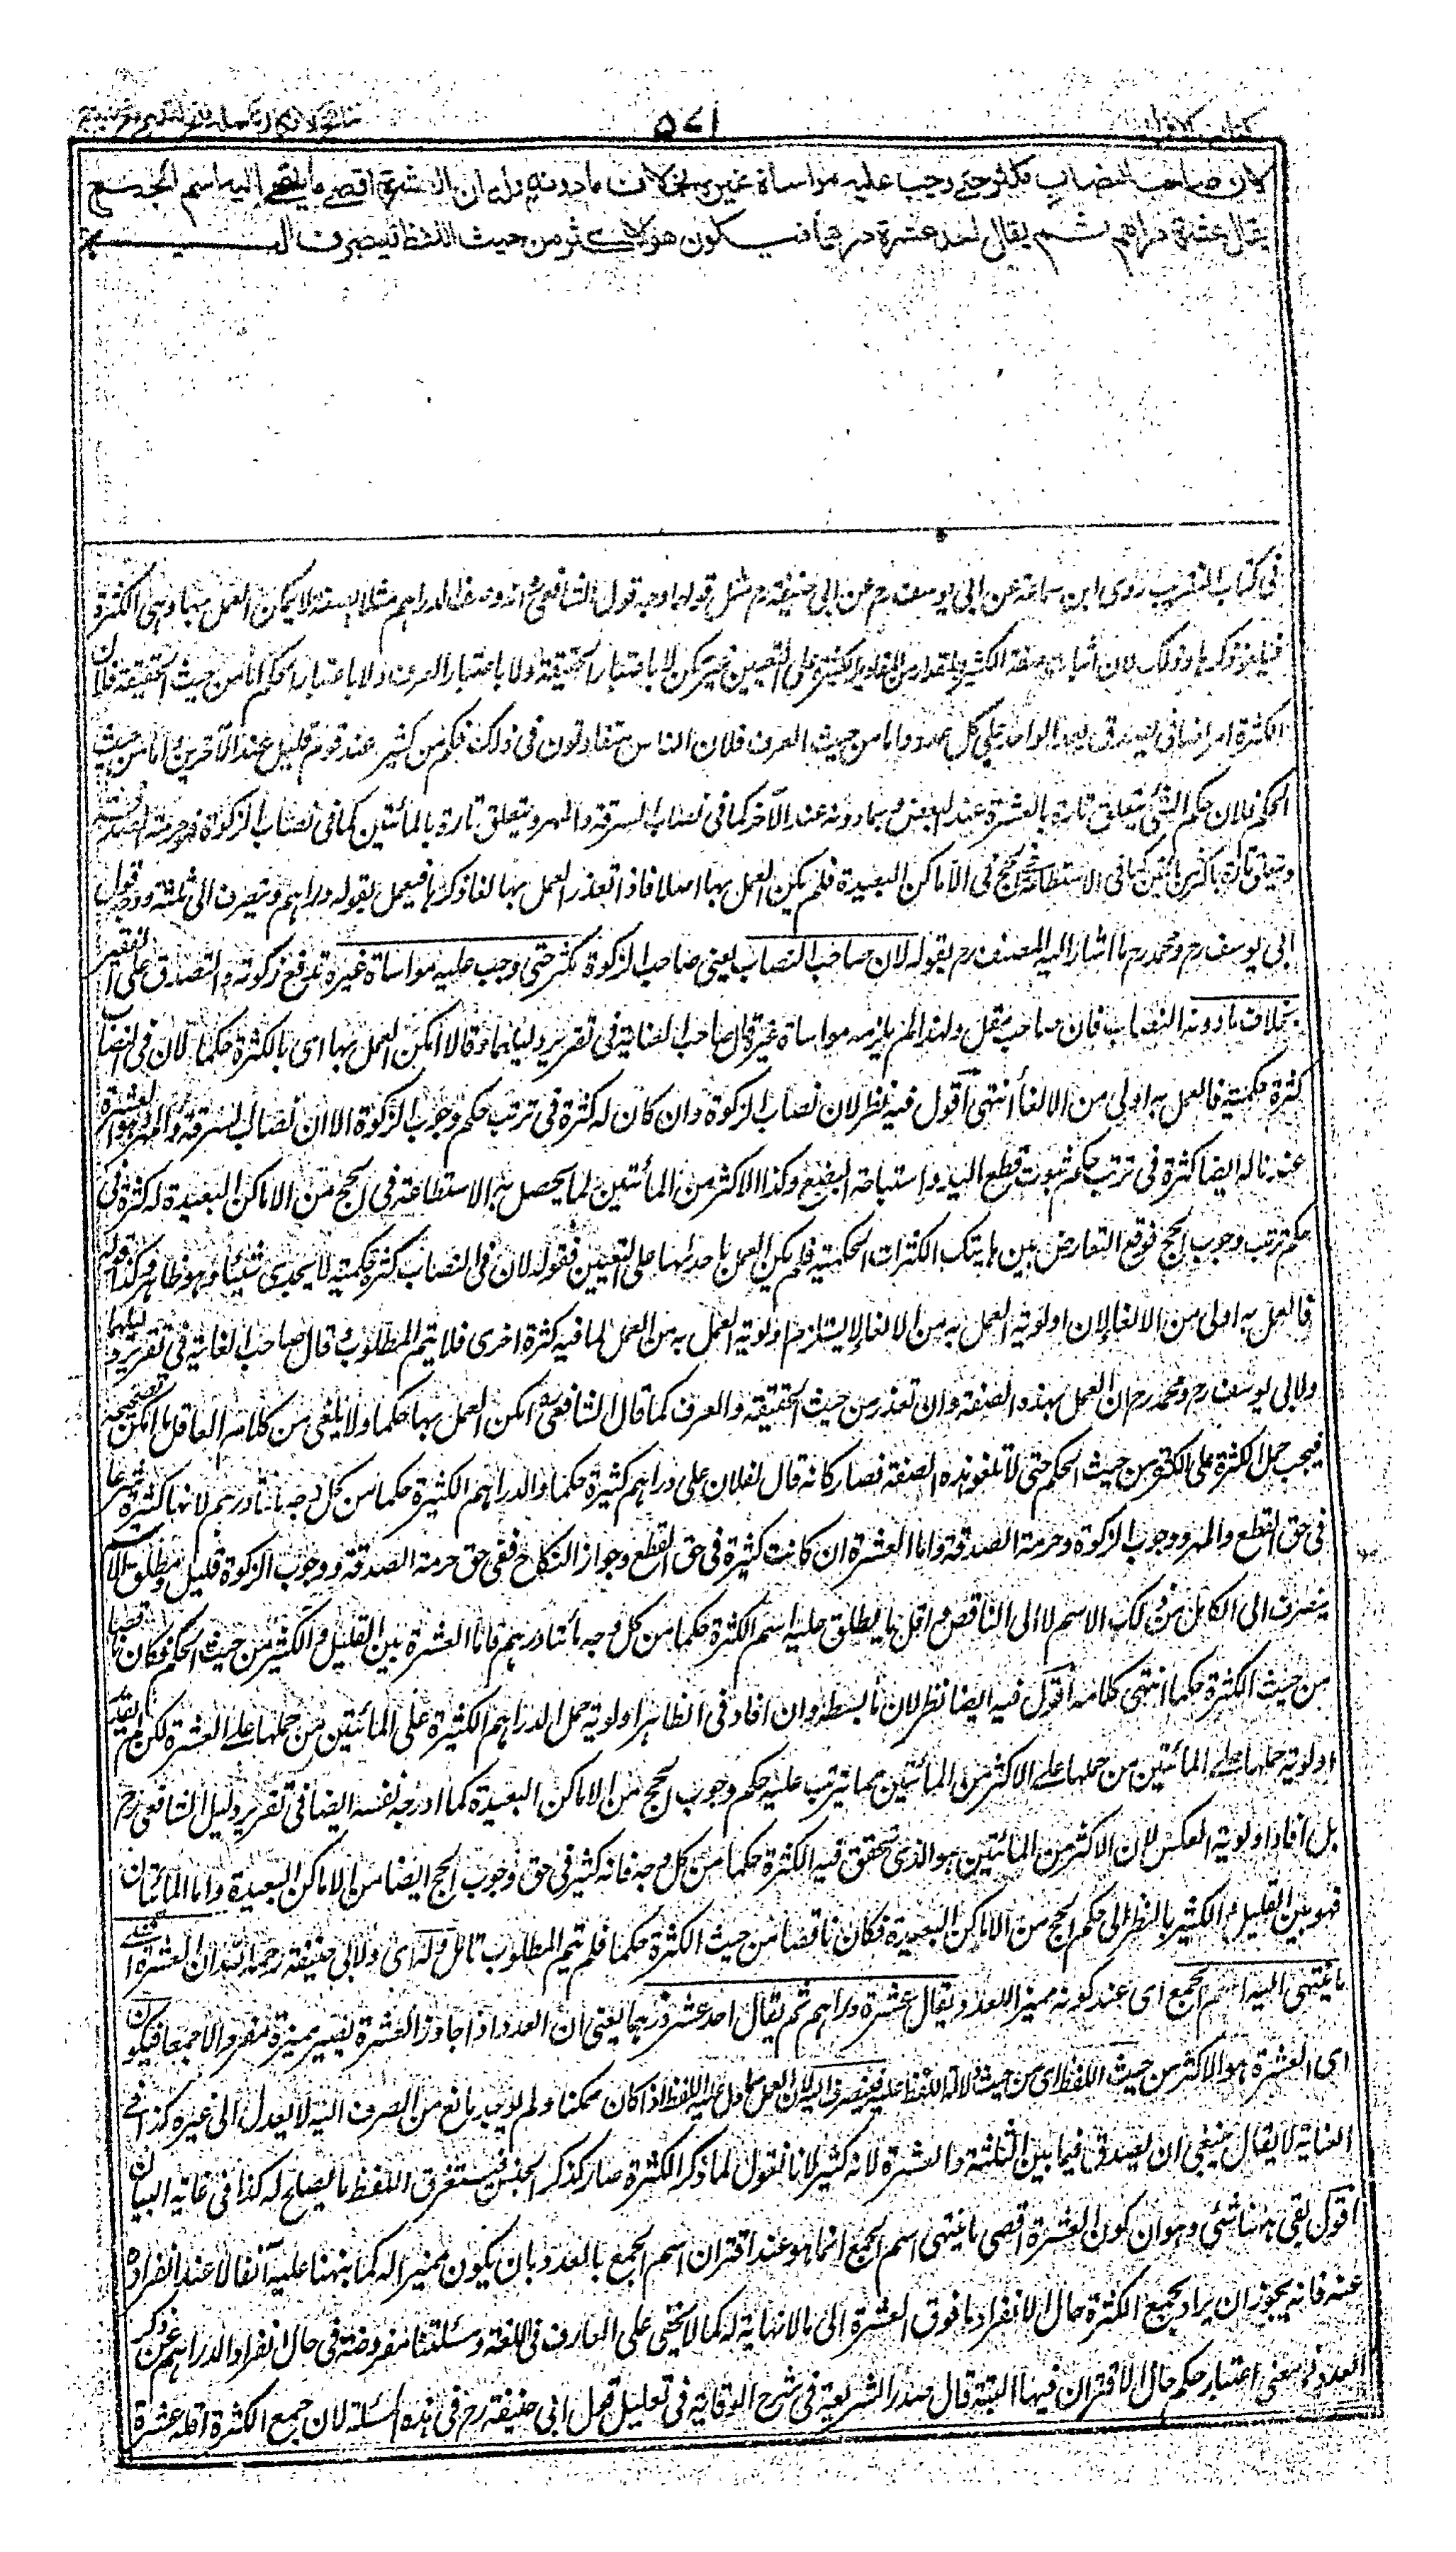 كتاب الاقرار
٥٧١
نتائج الافكار تكملة فتح القدير
لان صاحب النصاب مكثر حتى وجب عليه مواساة غيره بخلاف ما دونه وله ان العشرة اقصى ما ينتهي اليه اسم الجمع
يقال عشرة دراهم ثم يقال احد عشرة درهما فيكون هو الاكثر من حيث اللفظ فينصرف ال يه
في كتاب التقريب روى ابن سماعة عن ابي يوسف رح عن ابي حنيفة رح مثل قولهما وجه قول الشافعي انه وصف الدراهم بصفة لا يمكن العمل بها وهي الكثرة
فيلغو ذكرها وذلك لان اثبات صفة الكثرة لمقدار من المقادير الكثيرة على التعيين غير ممكن لا باعتبار الحقيقة ولا باعتبار العرف ولا باعتبار الحكم اما من حيث الحقيقة فلان
الكثرة امر اضافي يصدق بعد الواحد على كل عدد واما من حيث العرف فلان الناس متفاوتون في ذلك فكم من كثير عند قوم قليل عند الآخرين واما من حيث
الحكم فلان حكم الشئ يتعلق تارة بالعشرة عند البعض وبما دونه عند الآخر كما في نصاب السرقة والمهر ويتعلق تارة بالمائتين كما في نصاب الزكوة وحرمة الصدقة
ويتعلق تارة باكثر من المائتين كما في الاستطاعة في الحج في الاماكن البعيدة فلم يكن العمل بها اصلا فاذا تعذر العمل بها لغا ذكرها فيعمل بقوله دراهم ويصرف الى ثلثة ووجه قول
ابي يوسف رح ومحمد رح ما اشار اليه المصنف رح بقوله لان صاحب النصاب يعني صاحب الزكوة مكثر حتى وجب عليه مواساة غيره بدفع زكوته والتصدق على الفقير
بخلاف ما دونه النصاب فان صاحبه مقل ولهذا لم يلزمه مواساة غيره قال صاحب العناية في تقرير دليلهما وقالا امكن العمل بها اى بالكثرة حكما لان في النصاب
كثرة حكمية فالعمل به اولى من الالغا انتهى اقول فيه نظر لان نصاب الزكوة وان كان له كثرة في ترتب حكم وجوب الزكوة الا ان نصاب السرقة والمهر وهو العشرة
عندنا له ايضا كثرة في ترتب حكم ثبوت قطع اليد واستباحة البضع وكذا الاكثر من المائتين لما يحصل به الاستطاعة في الحج من الاماكن البعيدة له كثرة في
حكم ترتب وجوب الحج فوقع التعارض بين هاتيك الكثرات الحكمية فلم يكن العمل باحدلها على التعيين فقوله لان في النصاب كثرة حكمية لا يجدى شيئا وهو ظاهر وكذا قوله
فالعمل به اولى من الالغا لان اولوية العمل به من الالغا لا يستلزم اولوية العمل به من العمل لما فيه كثرة اخرى فلا يتم المطلوب وقال صاحب الغاية في تقرير دليلهما
ولابي يوسف رح ومحمد رح ان العمل بهذه الصفة وان تعذر من حيث الحقيقة والعرف كما قال الشافعي امكن العمل بها حكما ولا يلغى من كلام العاقل ما امكن تصحيحه
فيجب حمل الكثرة على الكثرة من حيث الحكم حتى لا تلغو هذه الصفة فصار كانه قال لفلان على دراهم كثيرة حكما والدراهم الكثيرة حكما من كل وجه مائتا درهم لانها كثيرة شرعا
في حق القطع والمهر ووجوب الزكوة وحرمة الصدقة واما العشرة ان كانت كثيرة في حق القطع وجواز النكاح ففي حق حرمة الصدقة ووجوب الزكوة قليل ومطلق الاسم
ينصرف الى الكامل من ذلك الاسم لا الى الناقص واقل ما يطلق عليه اسم الكثرة حكما من كل وجه مائتا درهم فاما العشرة بين القليل والكثير من حيث الحكم فكان ناقصا
من حيث الكثرة حكما انتهى كلامه اقول فيه ايضا نظر لان ما بسطه وان افاد في الظاهر اولوية حمل الدراهم الكثيرة على المائتين من حملها على العشرة لكن لم يفد
اولوية حملها على المائتين من حملها على الاكثر من المائتين مما يترتب عليه حكم وجوب الحج من الاماكن البعيدة كما ادرجه نفسه ايضا في تقرير دليل الشافعي رح
بل افاد اولوية العكس لان الاكثر من المائتين هو الذى تحقق فيه الكثرة حكما من كل وجه فانه كثير في حق وجوب الحج ايضا من الاماكن البعيدة واما المائتان
فهو بين القليل والكثير بالنظر الى حكم الحج من الاماكن البعيدة فكان ناقصا من حيث الكثرة حكما فلم يتم المطلوب تامل وله اى ولابي حنيفة رحمه الله ان العشرة اقصى
ما ينتهى اليه اسم الجمع اى عند كونه مميزا للعدد ويقال عشرة دراهم ثم يقال احد عشر درهما يعنى ان العدد اذا جاوز العشرة يصير مميزه مفردا لا جمعا فيكون
اى العشرة هو الاكثر من حيث اللفظ اى من حيث دلالة اللفظ عليه فينصرف اليه لان العمل بما دل عليه اللفظ اذا كان ممكنا ولم يوجد مانع من الصرف اليه لا يعدل الى غيره كذا في
العناية لا يقال ينبغي ان يصدق فيما بين الثلثة والعشرة لانه كثير لانا نقول لما ذكر الكثرة صار كذكر الجنس فيستغرق اللفظ ما يصلح له كذا في غاية البيان
اقول بقى ههنا شئي وهو ان كون العشرة اقصى ما ينتهى اسم الجمع انما هو عند اقتران اسم الجمع بالعدد بان يكون مميزا له كما نبهنا عليه آنفا لا عند انفراده
عنه فانه يجوز ان يراد بجمع الكثرة حال الانفراد ما فوق العشرة الى ما لا نهاية له كما لا يخفى على العارف في اللغة ومسئلتنا مفروضة في حال انفراد الدراهم عن ذكر
العدد فلا معنى اعتبار حكم حال الاقتران فيها البتة قال صدر الشريعة في شرح الوقاية في تعليل قول ابي حنيفة رح في هذه المسئلة لان جمع الكثرة اقله عشرة